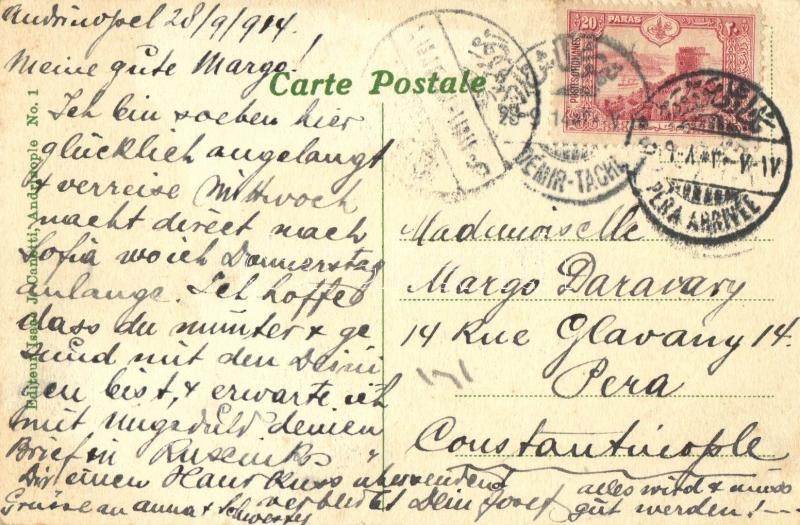 Andrinopel 28/9/914
Meine gute Margo!
Carte Postale
Ich bin soeben hier
glücklich angelangt
& verreise Mittwoch
nacht direct nach
Sofia wo ich Donnerstag
anlange. Ich hoffe
dass du munter & ge
sund mit den Deini
gen bist, & erwarte ich
mit Ungeduld deinen
Brief in
Dir einen Handkuss übersendend
verbleibt Dein Josef
Grüsse an Anna & Schwester
alles wird & muss
gut werden! —
Editeur Isaac J. Canetti, Andrinople No. 1
20 PARAS
POSTES OTTOMANES
DEMIR-TACHE
PERA ARRIVÉE
Mademoiselle
Margo Daravary
14 Rue Glavany 14.
Pera
Constantinople